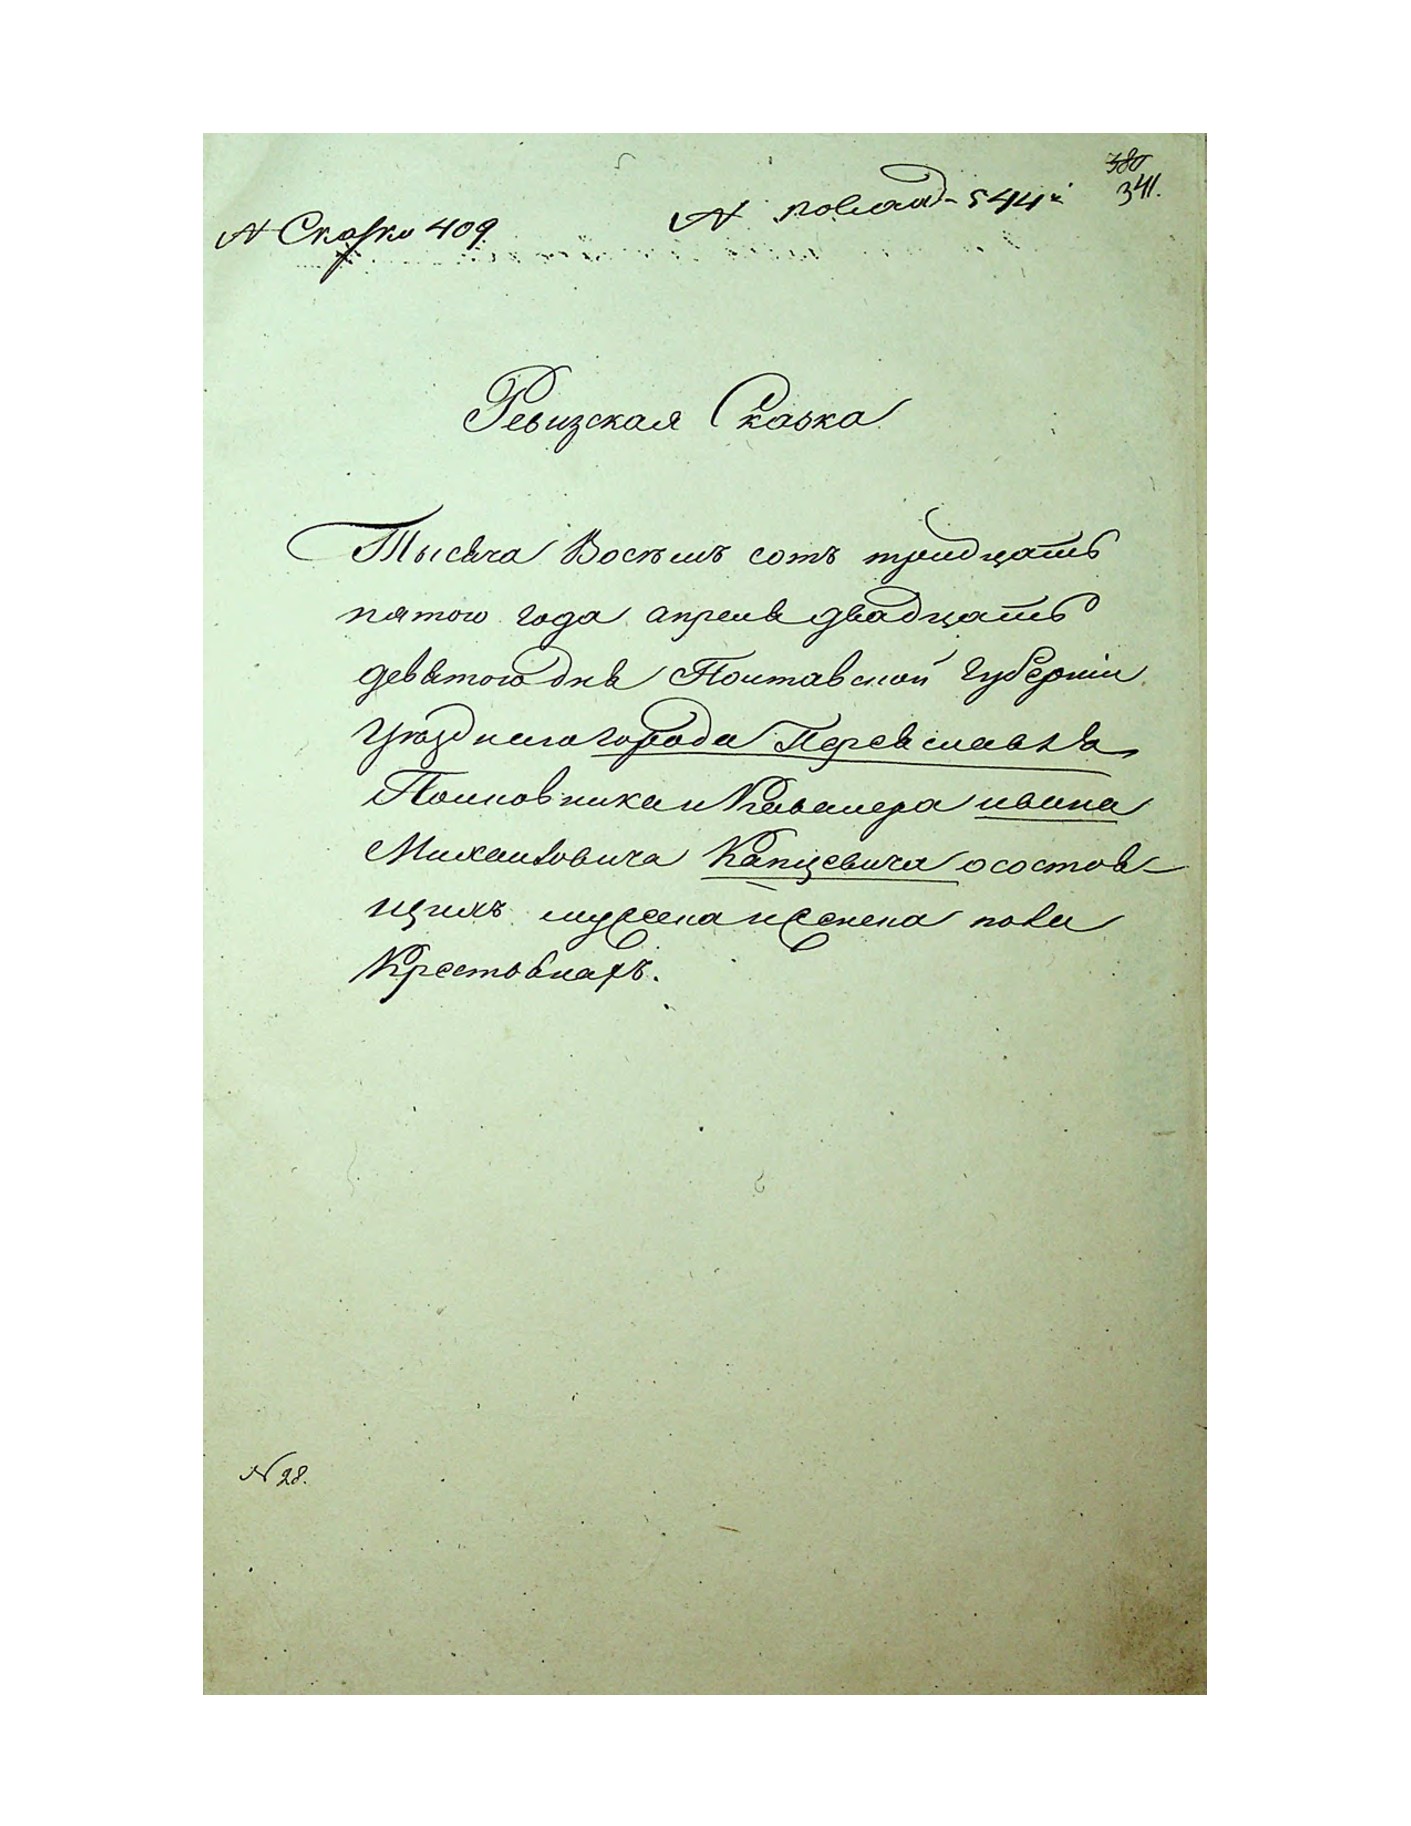 380
341.
№ Сказки 409
№ 544й
Ревизская Сказка
Тысяча Восемъ сотъ тридцать
пятого года апреля двадцать
девятого дня Полтавской Губернии
Уезднаго города Переяславля
Полковника и Кавалера ивана
Михайловича Капцевича о состоя-
щихъ мужеска и женска пола
Крестьянахъ.
№ 28.